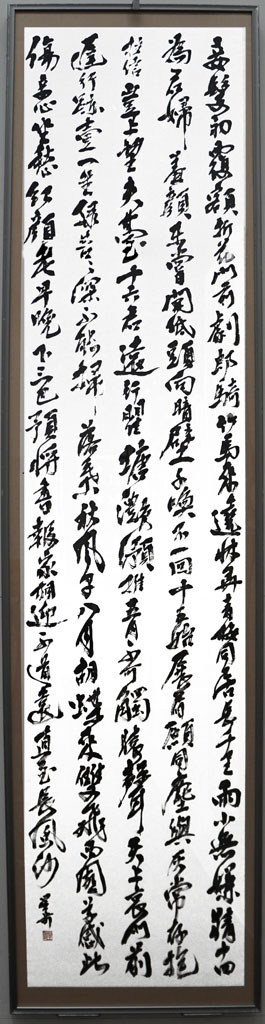 妾髮初覆額折花門前劇郎騎竹馬來遶牀弄青梅同居長干里兩小無嫌猜十四
為君婦羞顏未嘗開低頭向暗壁千喚不一回十五始展眉願同塵與灰常存抱
柱信豈上望夫臺十六君遠行瞿塘灩澦堆五月不可觸猿聲天上哀門前
遲行跡壹一生綠苔々深不能掃落葉秋風早八月胡蝶來雙飛西園草感此
傷妾心坐愁紅顏老早晚下三巴預將書報家相迎不道遠直至長風沙